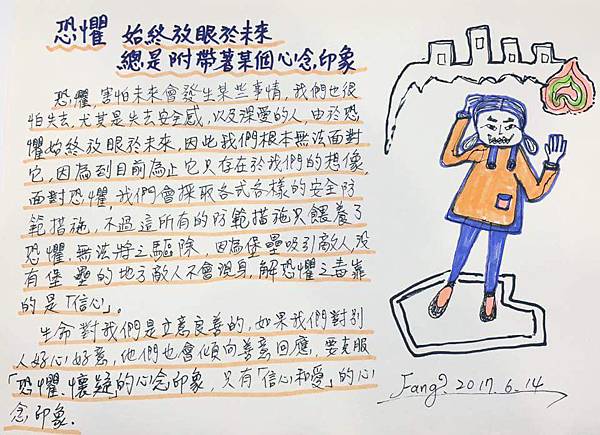 恐懼 始終放眼於未來
總是附帶著某個心念印象
恐懼 害怕未來會發生某些事情,我們也很
怕失去,尤其是失去安全感,以及深愛的人,由於恐
懼始終放眼於未來,因此我們根本無法面對
它,因為到目前為止它只存在於我們的想像,
面對恐懼 我們會採取各式各樣的安全防
範措施,不過這所有的防範措施只餵養了
恐懼,無法將之驅除,因為堡壘吸引敵人,沒
有堡壘的地方敵人不會現身,解恐懼之毒靠
的是「信心」。
生命對我們是立意良善的,如果我們對別
人好心好意,他們也會傾向善意回應,要克服
「恐懼、懷疑」的心念印象,只有「信心和愛」的心
念印象.
Fang. 2017. 6. 14